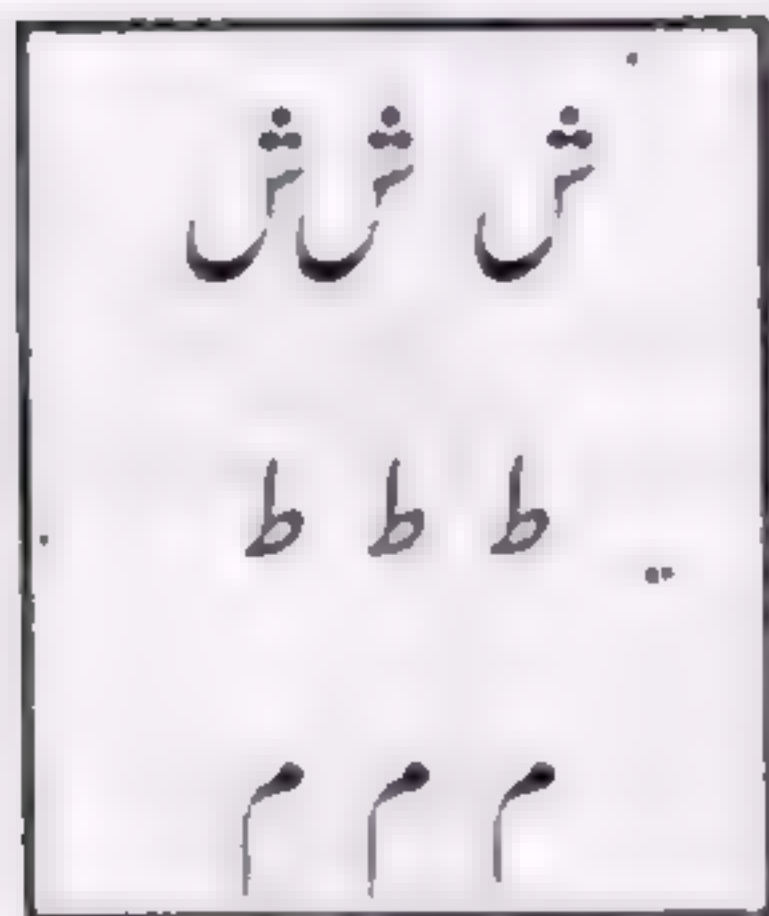 ش ش ش
ط ط ط
م م م